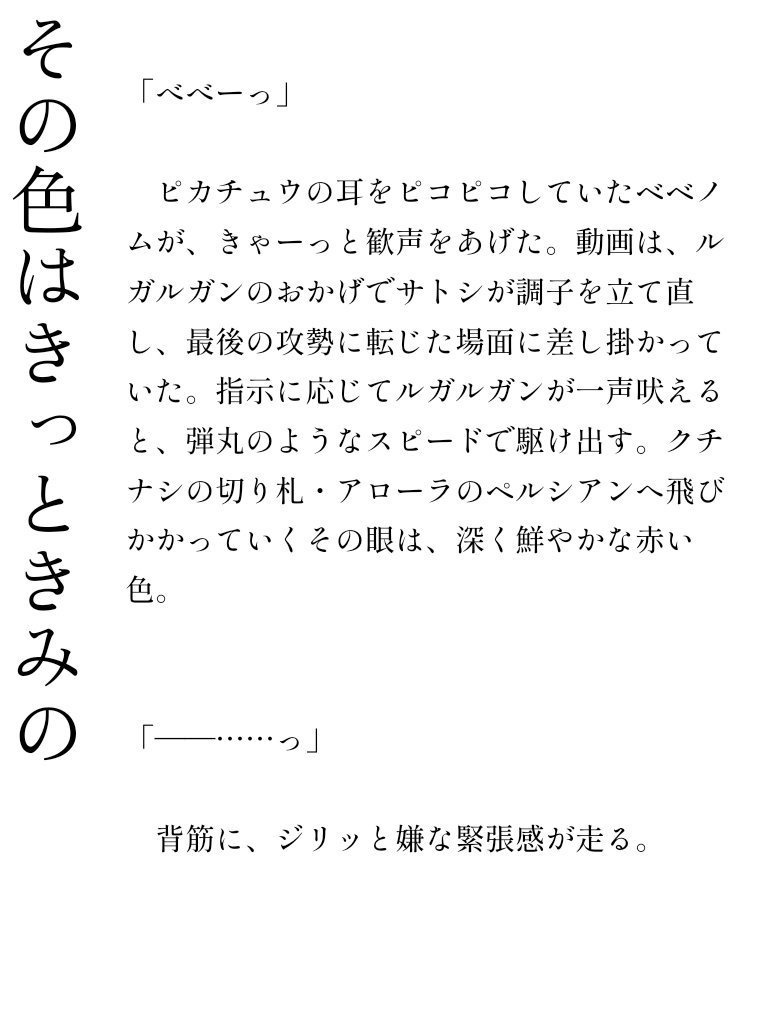 その色はきっときみの
「べべーっ」
　ピカチュウの耳をピコピコしていたベベノ
ムが、きゃーっと歓声をあげた。動画は、ル
ガルガンのおかげでサトシが調子を立て直
し、最後の攻勢に転じた場面に差し掛かって
いた。指示に応じてルガルガンが一声吠える
と、弾丸のようなスピードで駆け出す。クチ
ナシの切り札・アローラのペルシアンへ飛び
かかっていくその眼は、深く鮮やかな赤い
色。
「――……っ」
　背筋に、ジリッと嫌な緊張感が走る。